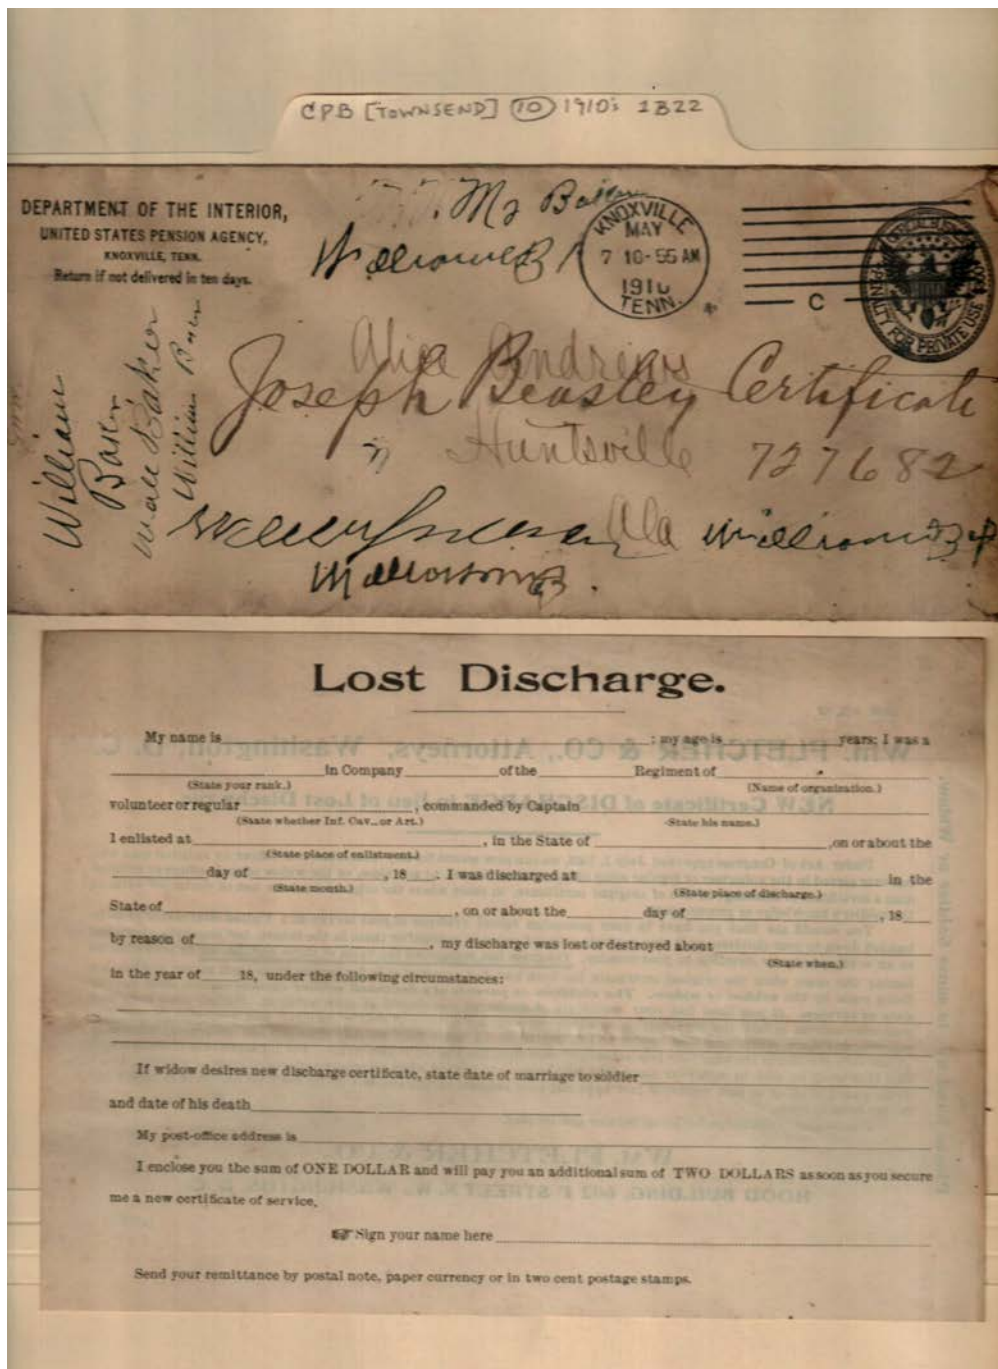 CPB [TOWNSEND] (10) 1910's 1322
DEPARTMENT OF THE INTERIOR,
UNITED STATES PENSION AGENCY,
KNOXVILLE, TENN.
Return if not delivered in ten days.
KNOXVILLE
MAY
7 10-55 AM
1910
TENN.
C
PENALTY FOR PRIVATE USE $300
Alice Andrews
Joseph Beasley Certificate
Huntsville 727682
Ala
William
Baker
William Baker
Lost Discharge.
My name is ; my age is years; I was a
in Company of the Regiment of
(State your rank.) (Name of organization.)
volunteer or regular , commanded by Captain
(State whether Inf. Cav., or Art.) (State his name.)
I enlisted at , in the State of , on or about the
(State place of enlistment.)
day of , 18 . I was discharged at in the
(State month.) (State place of discharge.)
State of , on or about the day of , 18
by reason of , my discharge was lost or destroyed about
(State when.)
in the year of 18, under the following circumstances:
If widow desires new discharge certificate, state date of marriage to soldier
and date of his death
My post-office address is
I enclose you the sum of ONE DOLLAR and will pay you an additional sum of TWO DOLLARS as soon as you secure
me a new certificate of service.
Sign your name here
Send your remittance by postal note, paper currency or in two cent postage stamps.